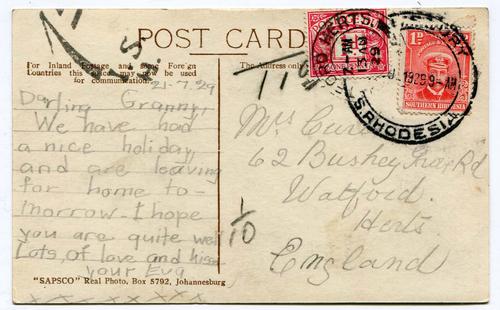 POST CARD
For Inland Postage and some Foreign
Countries this space may now be used
for communication.
The Address only
21-7-29
Darling Granny,
We have had
a nice holiday,
and are leaving
for home to-
morrow - I hope
you are quite well
Lots, of love and kisses
your Eva
x x x x x x x x
"SAPSCO" Real Photo, Box 5792, Johannesburg
Mrs
62 Bushey Rd
Watford
Herts
England
1/10
S. RHODESIA
1929 9-AM
1D
SOUTHERN RHODESIA